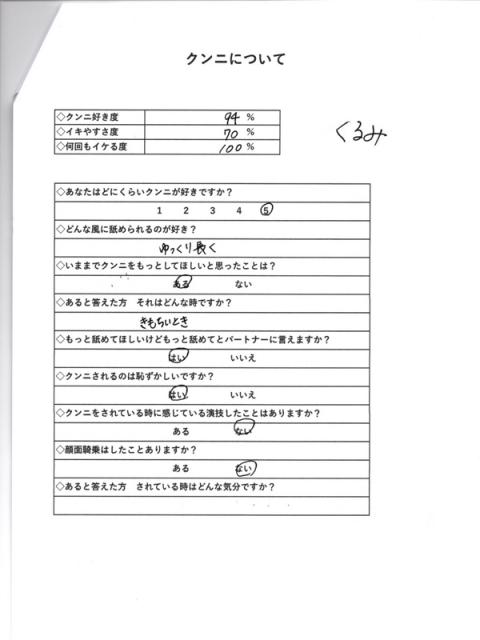 クンニについて
くるみ
◇クンニ好き度 94 %
◇イキやすさ度 70 %
◇何回もイケる度 100 %
◇あなたはどにくらいクンニが好きですか？
1 2 3 4 5
◇どんな風に舐められるのが好き？
ゆっくり長く
◇いままでクンニをもっとしてほしいと思ったことは？
ある ない
◇あると答えた方 それはどんな時ですか？
きもちいとき
◇もっと舐めてほしいけどもっと舐めてとパートナーに言えますか？
はい いいえ
◇クンニされるのは恥ずかしいですか？
はい いいえ
◇クンニをされている時に感じている演技したことはありますか？
ある ない
◇顔面騎乗はしたことありますか？
ある ない
◇あると答えた方 されている時はどんな気分ですか？